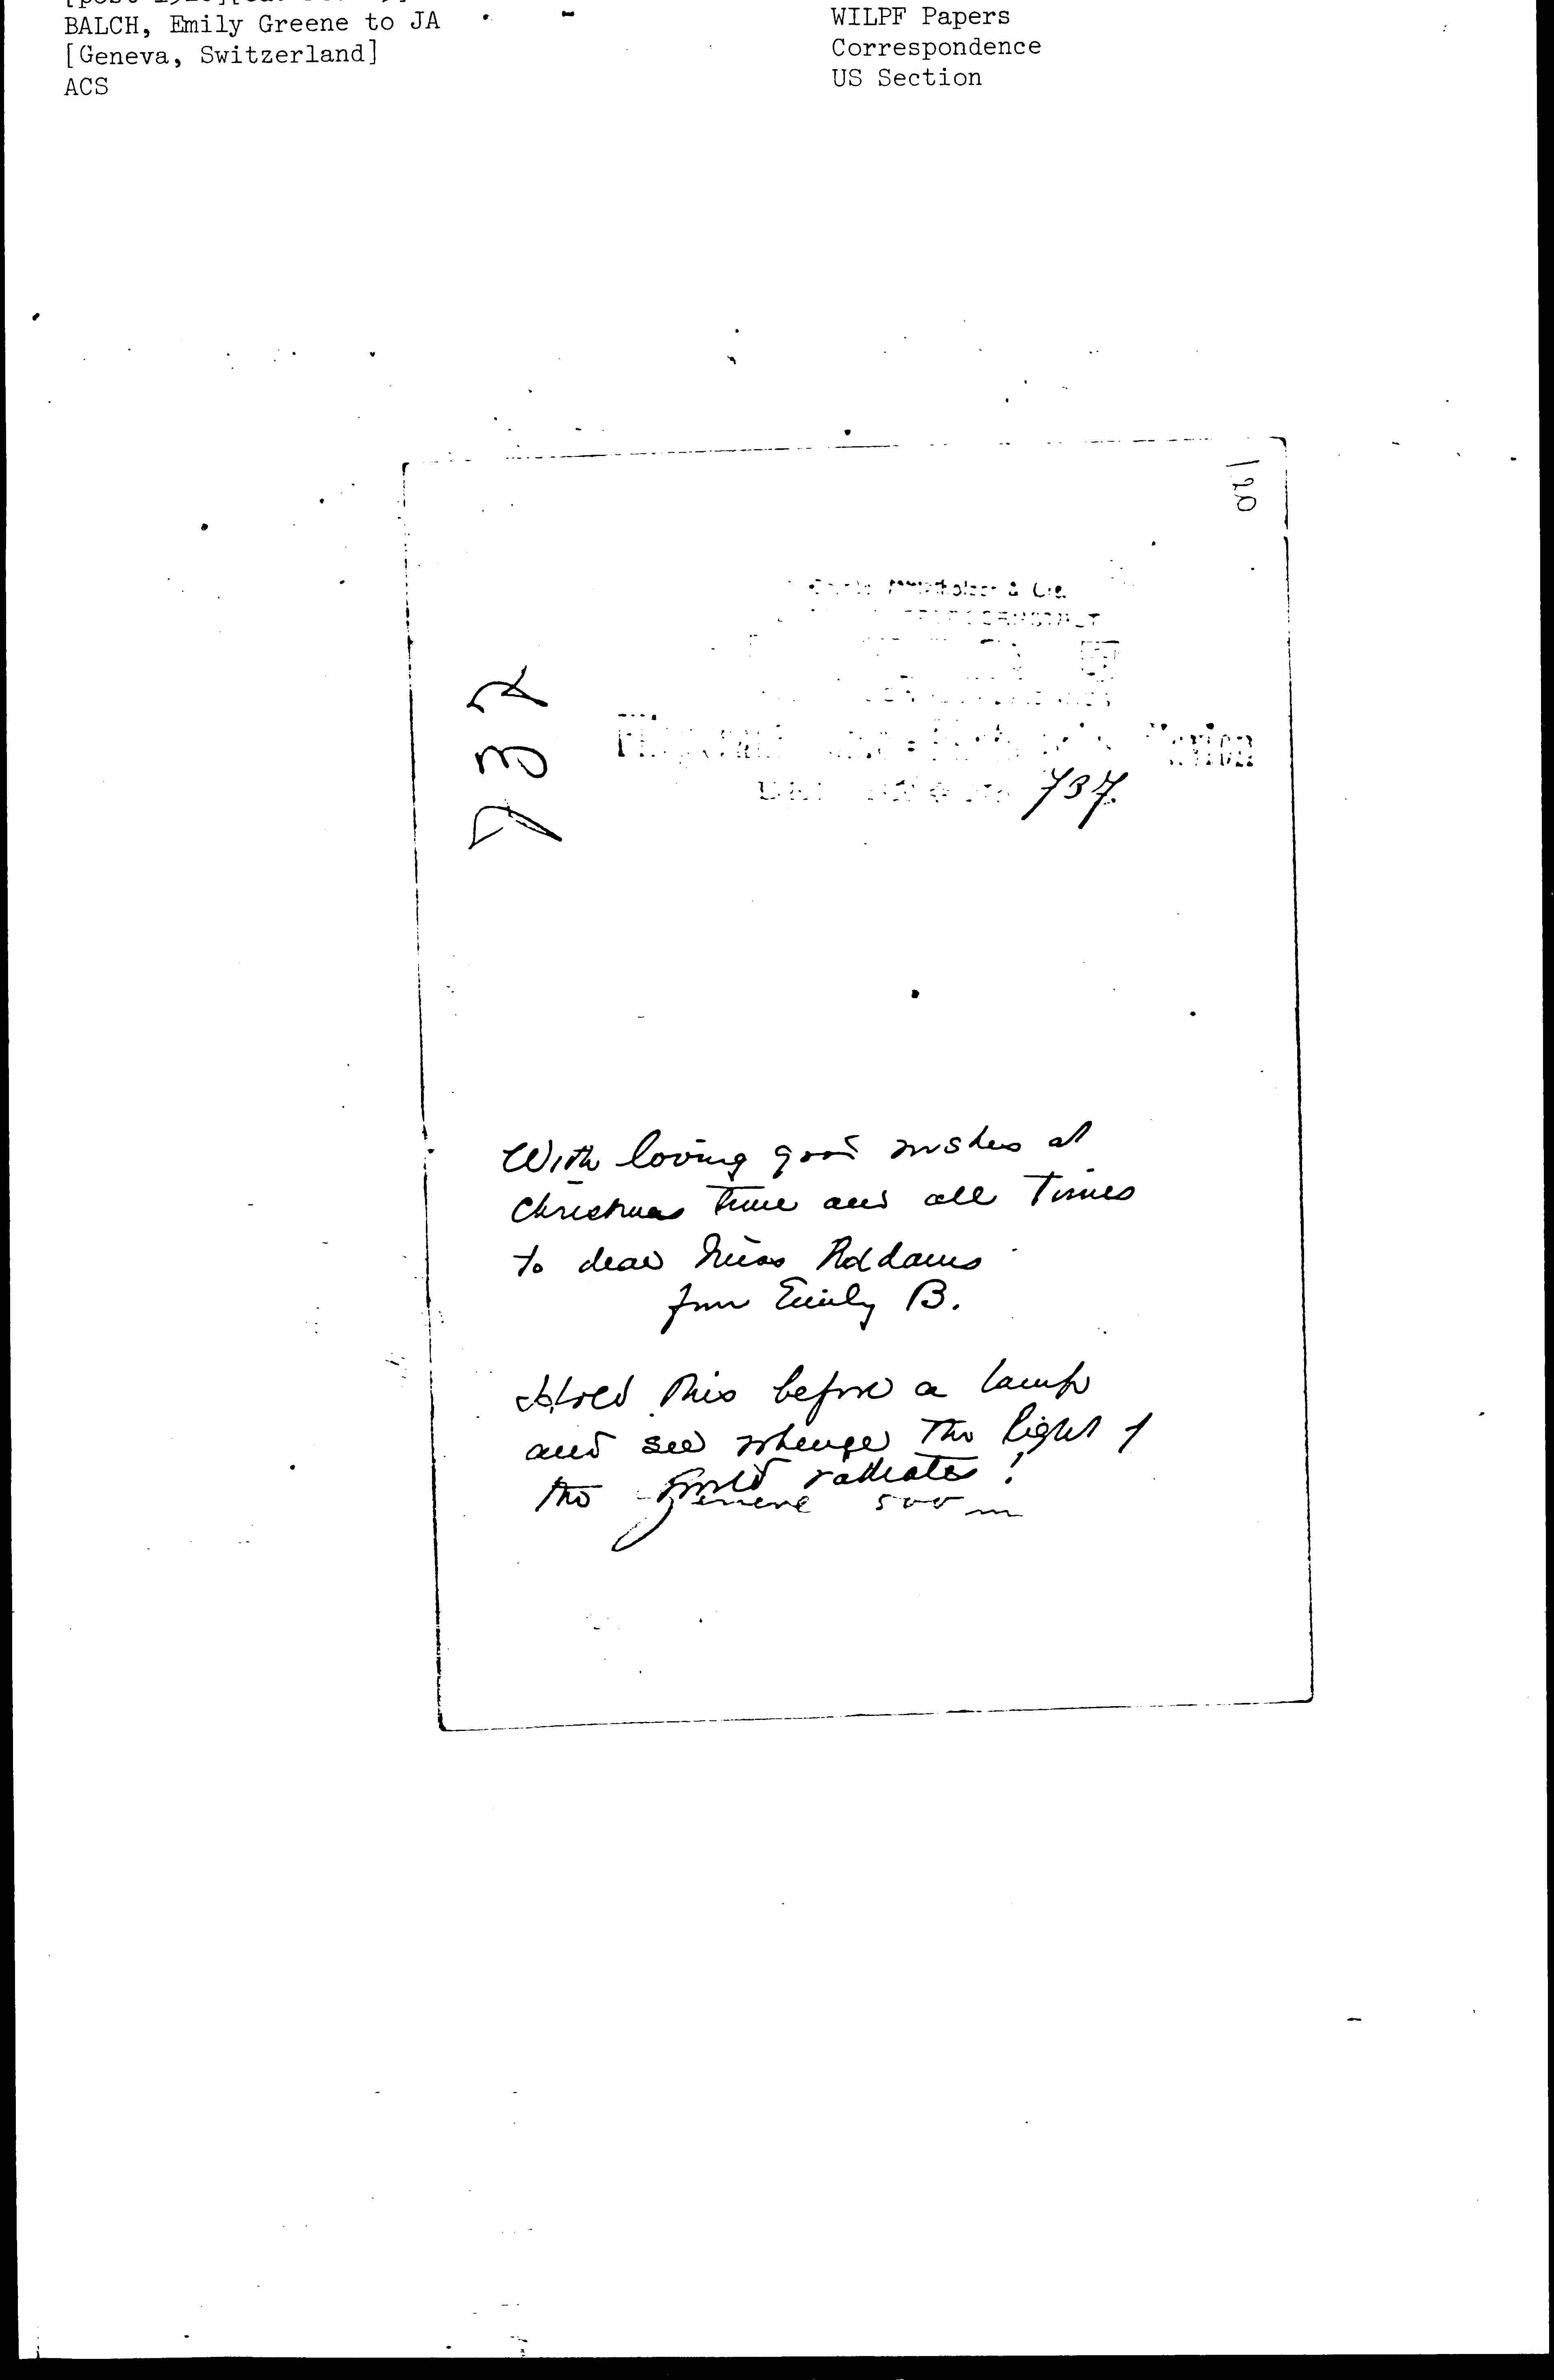 BALCH, Emily Greene to JA
[Geneva, Switzerland]
ACS
WILPF Papers
Correspondence
US Section
120
737
737.
With loving good wishes at
Christmas time and all times
to dear Miss Addams
from Emily B.
Hold this before a lamp
and see whence the light of
the world radiates!
Geneve 500 m